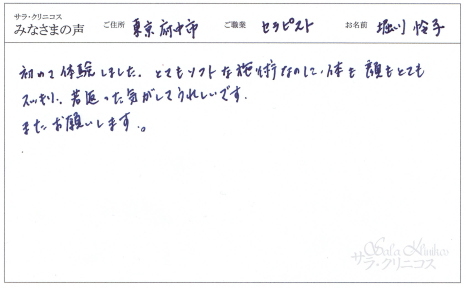 サラ・クリニコス
みなさまの声 ご住所 東京府中市 ご職業 セラピスト お名前 堀川 怜子
初めて体験しました。とてもソフトな施術なのに、体も顔もとても
スッキリ、若返った気がしてうれしいです。
またお願いします。
Sala Klinikos
サラ・クリニコス